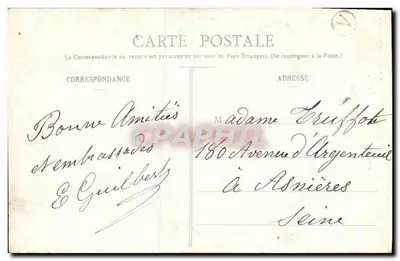 CARTE POSTALE
La Correspondance au recto n'est pas acceptée par tous les Pays Étrangers. (Se renseigner à la Poste.)
CORRESPONDANCE
ADRESSE
Bonne Amitiés
et embrassades
E Guilbert
Madame Truffot
180 Avenue d'Argenteuil
à Asnières
Seine
CPAPHIL
V